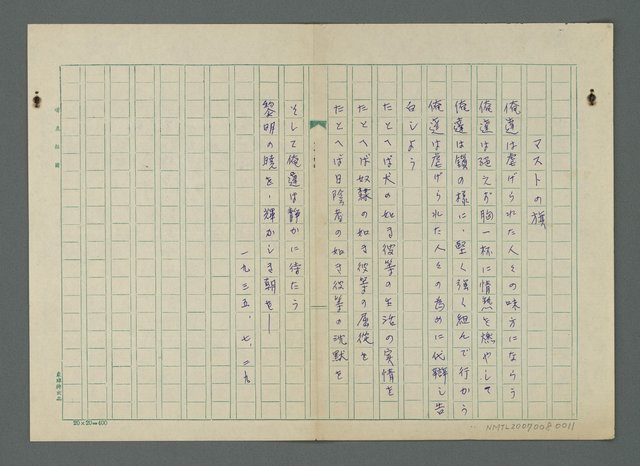 マストの旗
俺達は虐げられた人々の味方にならう
俺達は絶えず胸一杯に情熱を燃やして
俺達は鎖の様に、堅く強く組んで行かう
俺達は虐げられた人々の為めに代辯し告
白しよう
たとへば犬の如き彼等の生活の実情を
たとへば奴隸の如き彼等の屈從を
たとへば日陰者の如き彼等の沈默を
そして俺達は静かに待たう
黎明の暁を、輝かしき朝を―
一九三五、七、二九
20×20=400
NMTL20070080011